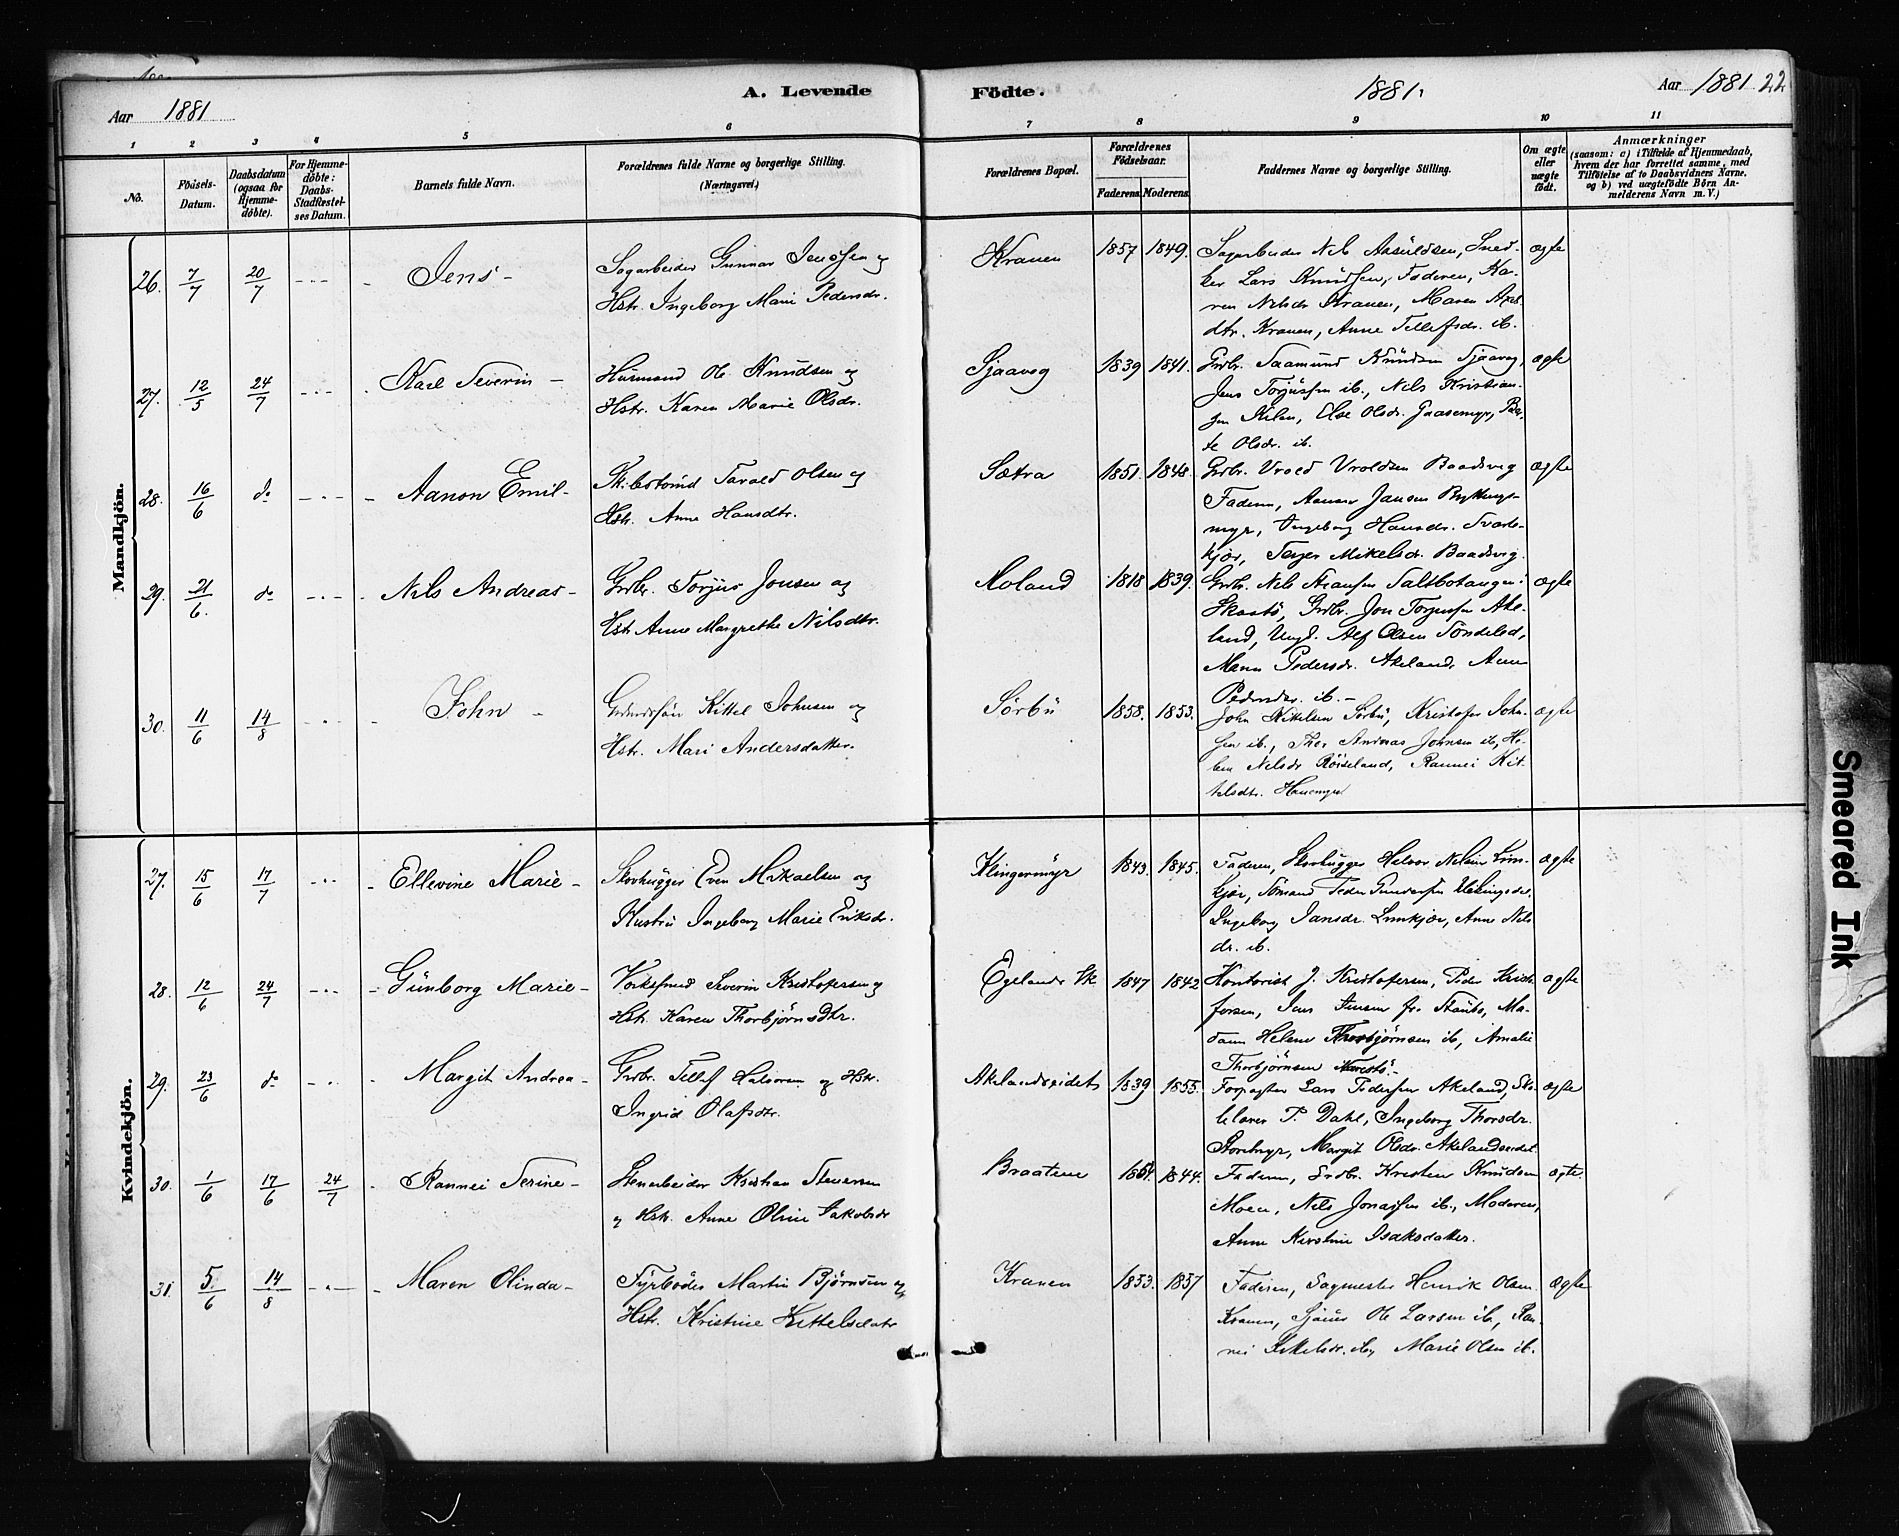 Aar 1881
A. Levende
Födte.
1881.
Aar 1881 22
1 2 3 4 5 6 7 8 9 10 11
No.
Födsels-
Datum.
Daabsdatum
(ogsaa for
Hjemme-
döbte).
For Hjemme-
döbte:
Daabs-
Stadfæstel-
ses Datum.
Barnets fulde Navn.
Forældrenes fulde Navne og borgerlige Stilling.
(Næringsvei.)
Forældrenes Bopæl.
Forældrenes
Födselsaar.
Faderens. Moderens.
Faddernes Navne og borgerlige Stilling.
Om ægte
eller
uægte
födt.
Anmærkninger
(saasom: a) i Tilfælde af Hjemmedaab,
hvem der har forrettet samme, med
Tilföielse af to Daabsvidners Navne,
og b) ved uægtefödte Börn An-
melderens Navn m. V.)
Mandkjön.
26. 7/7 20/7 Jens - Sagarbeider Gunnar Jenssen og
Hstr. Ingeborg Marie Pedersdr.
Kranen 1857 1849. Sagarbeider Nils Asiuldsen, Sned-
ker Lars Knudsen, Faderen, Ka-
ren Nilsdr Kranen, Maren Axels
dtr. Kranen, Anne Tellefsdr. ib.
ægte
27. 12/5 24/7 Karl Severin - Husmand Ole Knudsen og
Hstr. Karen Marie Olsdr.
Sjaavåg 1839 1841. Grdbr. Saamund Knudsen Sjaavåg,
Jens Torjussen ib., Nils Kristian-
sen Kilen, Else Olsdr. Gaasemyr,
Olsdr. ib.
ægte
28. 16/6 do Aanon Emil - Skibstømd Tarald Olsen og
Hstr. Anne Hansdtr.
Sætra 1851. 1848. Grdbr. Vrold Vroldsen Baadsvig
Faderen, Aanon Jansen
myr, Ingeborg Hansdr.
kjær, Mikelsdr. Baadsvig.
ægte
29. 21/6 do Nils Andreas - Grdbr. Torjus Jonsen og
Hstr Anne Margrethe Nilsdtr.
1818 1839. Grdbr. Nils Hansen Saltbotangen
Skaatö, Grdbr. Jon Torjussen Ake-
land, Ungk. Alf Olsen Söndeled,
Maren Pedersdr. Akeland, Anne
Pedersdr. ib. -
ægte
30. 11/6 14/8 John - Grdmdssön Kittel Johnsen og
Hstr. Mari Andersdatter.
Sörbö 1858. 1853. John Kittelsen Sörbö, Kristofer John-
sen ib., Thor Andreas Johnsen ib., He-
lene Nilsdr Röiseland, Rannei Kit-
telsdtr. Hanemyr
ægte
Kvindekjön.
27. 15/6 17/7 Ellevine Marie - Skovhugger Even Mikaelsen og
Hustru Ingeborg Marie Eriksdr.
Klingermyr 1843. 1845. Faderen, Skovhugger Halvor Nilsen Lun-
kjær, Sömand Peder Gundersen
Ingeborg Jansdr. Lunkjær, Anne Nils
dr. ib.
ægte
28. 12/6 24/7 Gunborg Marie - Værksfmd Severin Kristofersen og
Hstr. Karen Thorbjørnsdtr.
Egelands Vk 1847 1842 Kontorist J. Kristofersen, Peder Kristo
fersen, Jens Jensen fr. Stautö, Ma-
dam Helene Thorbjørnsen ib, Amalie
Thorbjørnsen Nærestö. -
ægte
29. 23/6 do Margit Andrea - Grdbr. Tellef Halvorsen og Hstr.
Ingrid Olafsdtr.
Akelandseidet 1839 1855. Forpagter Lars Pedersen Akeland, Sko-
lelærer P. Dahl, Ingeborg Thorsdr.
Storemyr, Margit Olsdr. Akelandseidet
ægte
30. 1/6 17/6 24/7 Rannei Serine - Stenarbeider Kristian Stenersen
og Hstr. Anne Oline Jakobsdr
Braatene 1854. 1844. Faderen, Grdbr. Kristen Knudsen
Moen, Nils Jonassen ib., Moderen,
Anne Kirstine Isaksdatter.
ægte.
31. 5/6 14/8 Maren Olinda - Fyrböder Martin Bjørnsen og
Hstr. Kristine Kittelsdatr
Kranen 1853. 1857 Faderen, Sagmester Henrik Olsen
Kranen, Sjömd Ole Larsen ib, Ran-
nei Kittelsdr. ib, Marie Olsen ib.
ægte
Smeared Ink